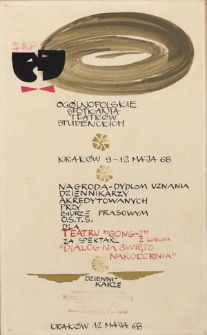 OGÓLNOPOLSKIE
SPOTKANIA
TEATRÓW
STUDENCKICH
KRAKÓW 9-12 MAJA 68
NAGRODA-DYPLOM UZNANIA
DZIENNIKARZY
AKREDYTOWANYCH
PRZY
BIURZE PRASOWYM
O.S.T.S.
DLA
TEATRU "GONG-2"
Z LUBLINA
ZA SPEKTAKL
"DIALOG NA ŚWIĘTO
NARODZENIA"
DZIENNI-
KARZE
KRAKÓW 12 MAJA 68